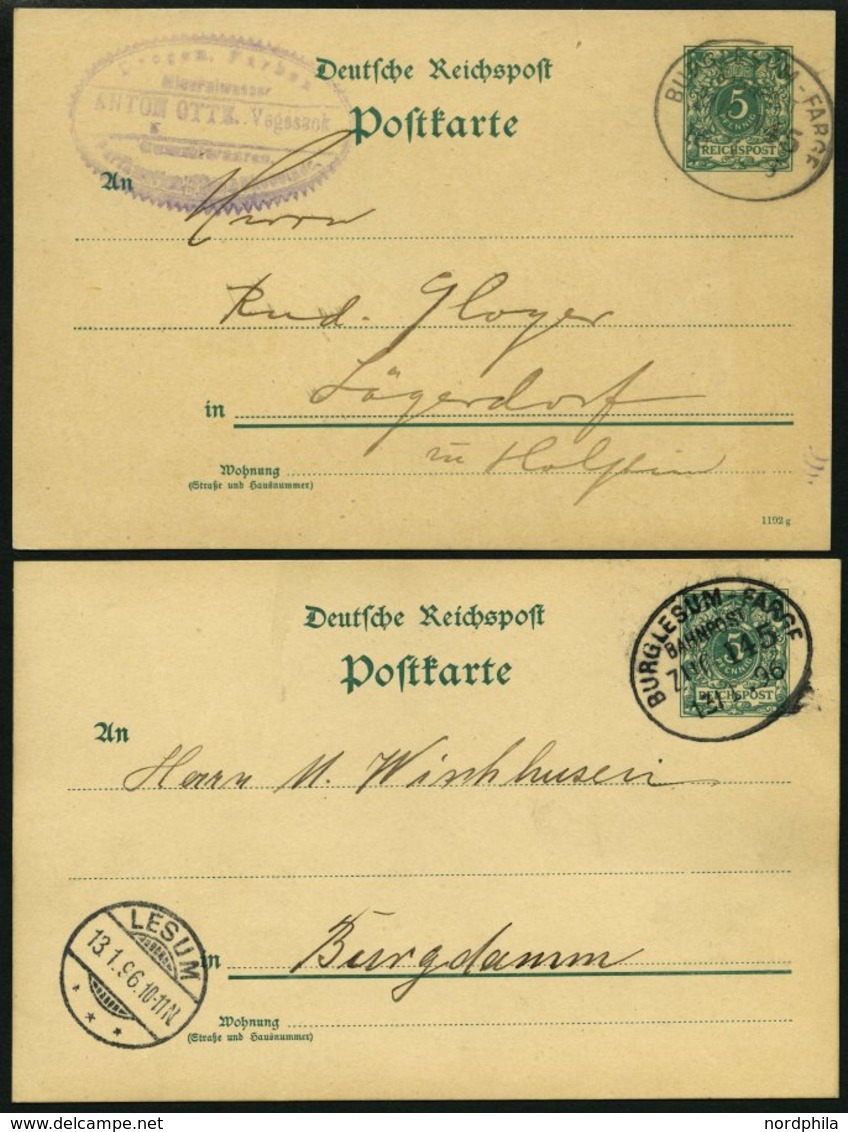 Drogen, Farben
Mineralwasser
ANTON OTTE, Vegesack
Gummiwaren,
Deutſche Reichspoſt
Poſtkarte
5
PFENNIG
REICHSPOST
BURGLESUM-FARGE
An
Herrn
Rud. Gloyer
in Lägerdorf
in Holstein
Wohnung
(Straße und Hausnummer)
1192 g
Deutſche Reichspoſt
Poſtkarte
5
PFENNIG
REICHSPOST
BURGLESUM-FARGE
BAHNPOST
ZUG 145
13 1 96
An
Herrn M. Wischhusen
in Burgdamm
LESUM
13.1.96.10-11N
* * *
Wohnung
(Straße und Hausnummer)
nordphila